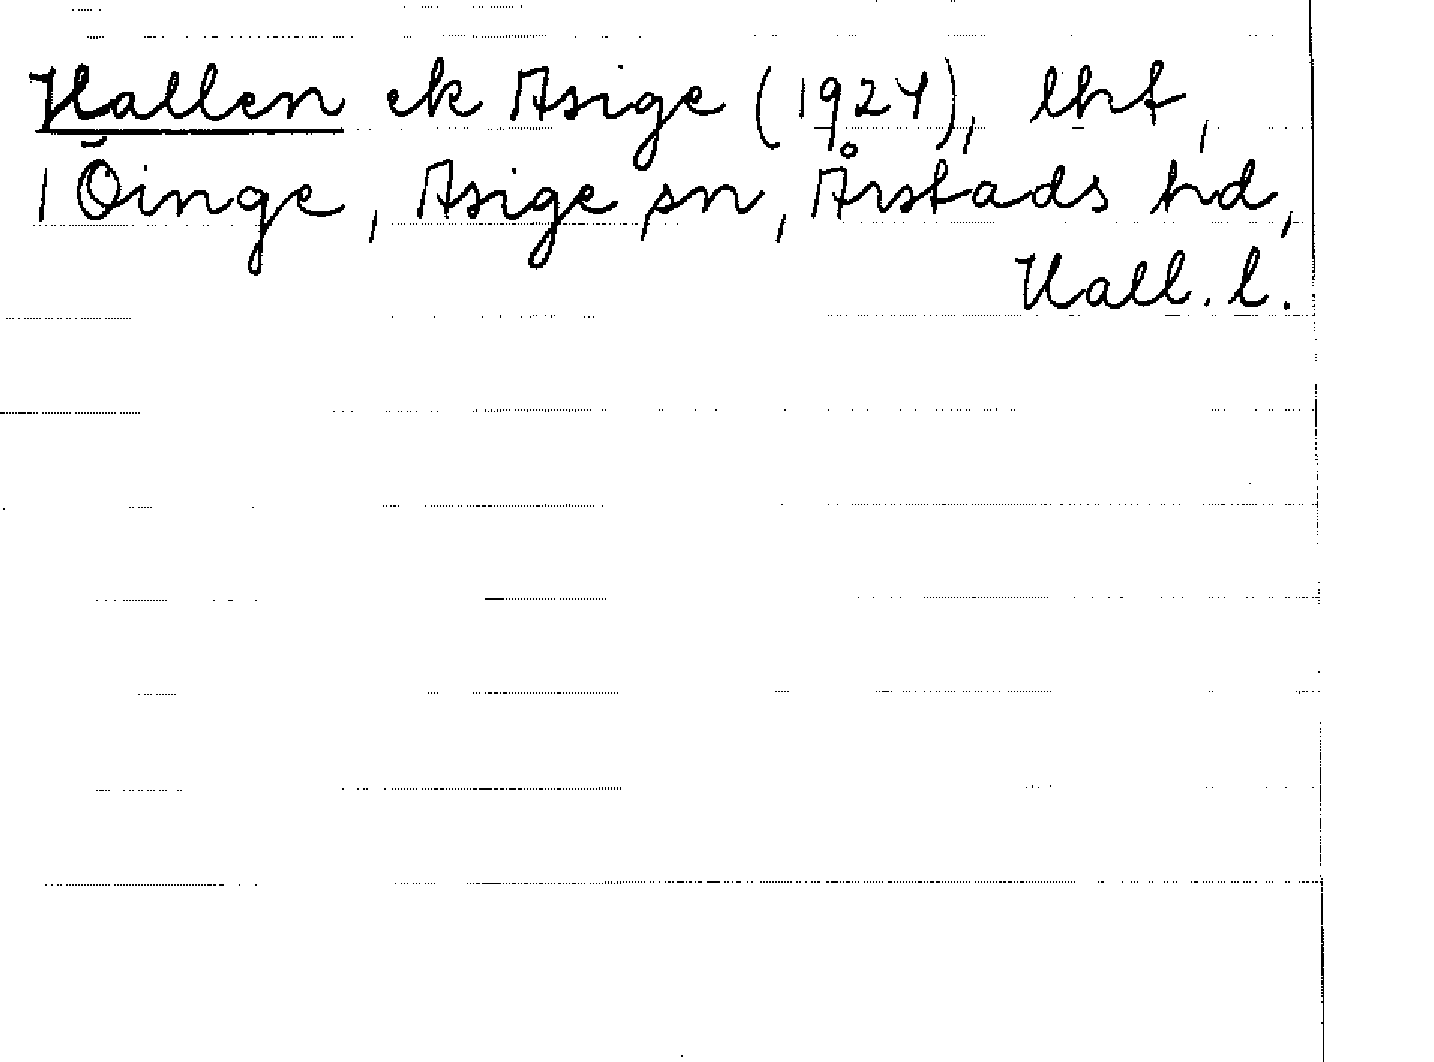 Hallen ek Asige (1924), lht,
1 Öinge, Asige sn, Årstads hd,
Hall. l.